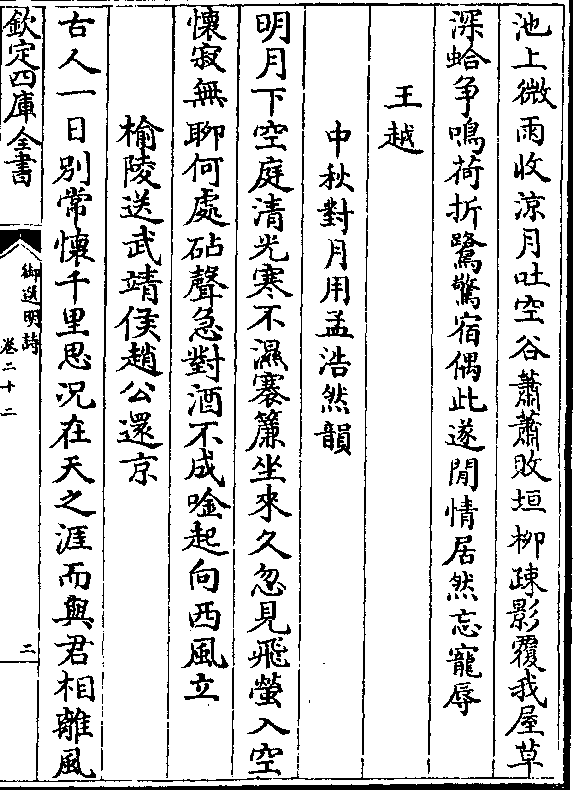 池上微雨收涼月吐空谷蕭蕭敗垣柳疎影覆我屋草
深蛤爭鳴荷折鷺驚宿偶此遂閒情居然忘寵辱
王越
中秋對月用孟浩然韻
明月下空庭清光寒不濕褰簾坐來久忽見飛螢入空
懷寂無聊何處砧聲急對酒不成唫起向西風立
榆陵送武靖侯趙公還京
古人一日別常懷千里思況在天之涯而與君相離風
欽定四庫全書
御選明詩
卷二十二
二